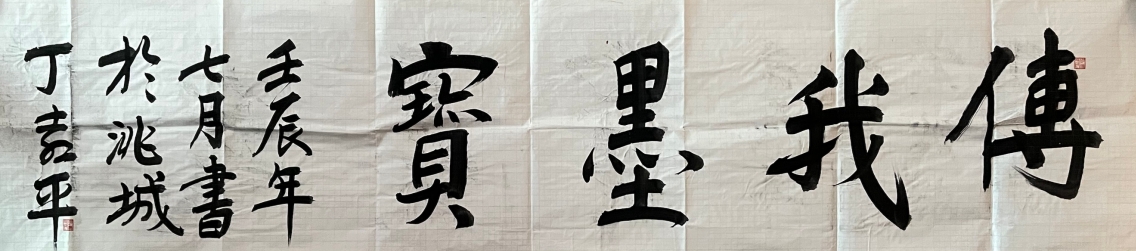 傳我墨寶
壬辰年
七月書
於洮城
丁嘉平